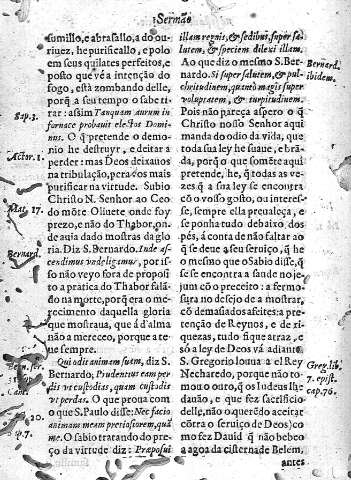 Sermão
sumillo, e abrasallo, a do ou-
riuez, he purificallo, e polo
em seus quilates perfeitos, e
posto que vé a intenção do
fogo, està zombando delle,
porq̃ a seu tempo o sabe ti-
rar: assim Tanquam aurum in
fornace probauit electos Domi-
nus. O q̃ pretende o demo-
nio he destruyr, e deitar a
perder: mas Deos deixanos
na tribulação, pera vos mais
purificar na virtude. Subio
Christo N. Senhor ao Ceo
do môte Oliuete, onde foy
prezo, e não do Thabor, on-
de auia dado mostras da glo-
ria. Diz S. Bernardo. Inde as-
cendimus vade ligimur, por is-
so não veyo fora de proposi-
to a pratica do Thabor falã-
do na morte, porq̃ era o me-
recimento daquella gloria
que mostraua, que á d'alma
não a mereceo, porque a te-
ue sempre.
Qui odit animam suam, diz S.
Bernardo; Prudentius eam per-
dit vt custodias, quam custodit
vt perdas. O que proua com
o que S. Paulo disse: Nec facio
animam meam pretiosiorem, quã
me. O sabio tratando do pre-
ço da virtude diz: Præposui
Sap. 3.
Actor. 1.
Mat. 17.
Bernard.
Bern. ser.
Cant.
20.
Sap. 7.
illam regnis, & sedibus, super sa-
lutem, & speciem dilexi illam.
Ao que diz o mesmo S. Ber-
nardo. Si super salutem, & pul-
chritudinem, quantò magis super
voluptatem, & turpitudinem.
Pois não pareça aspero o q̃
Christo nosso Senhor aqui
manda do odio da vida, que
toda sua ley he suaue, e brã-
da, porq̃ o que sómête aqui
pretende, he, q̃ todas as ve-
zes q̃ a sua ley se encontra
cõ o vosso gosto, ou interes-
se, sempre ella preualeça, e
se ponha tudo debaixo dos
pés, á conta de não faltar ao
q̃ se deue a seu seruiço, q̃ he
o mesmo que o Sabio disse, q̃
se se encontra a saude no je-
jum cõ o preceito: a fermo-
sura no desejo de a mostrar,
cõ demasiados afeites: a pre-
tenção de Reynos, e de ri-
quezas, tudo fique atraz, e
só a ley de Deos và adiante.
S. Gregorio louua a el Rey
Necharedo, porque não to-
mou o ouro, q̃ os Iudeus lhe
dauão, e que fez sacrificio
delle, não querêdo aceitar
côtra o seruiço de Deos) co
mo fez Dauid q̃ não bebeo
a agoa da cisterna de Belem,
antes
Bernard.
ibidem.
Greg. lib.
7. epist.
cap. 76.